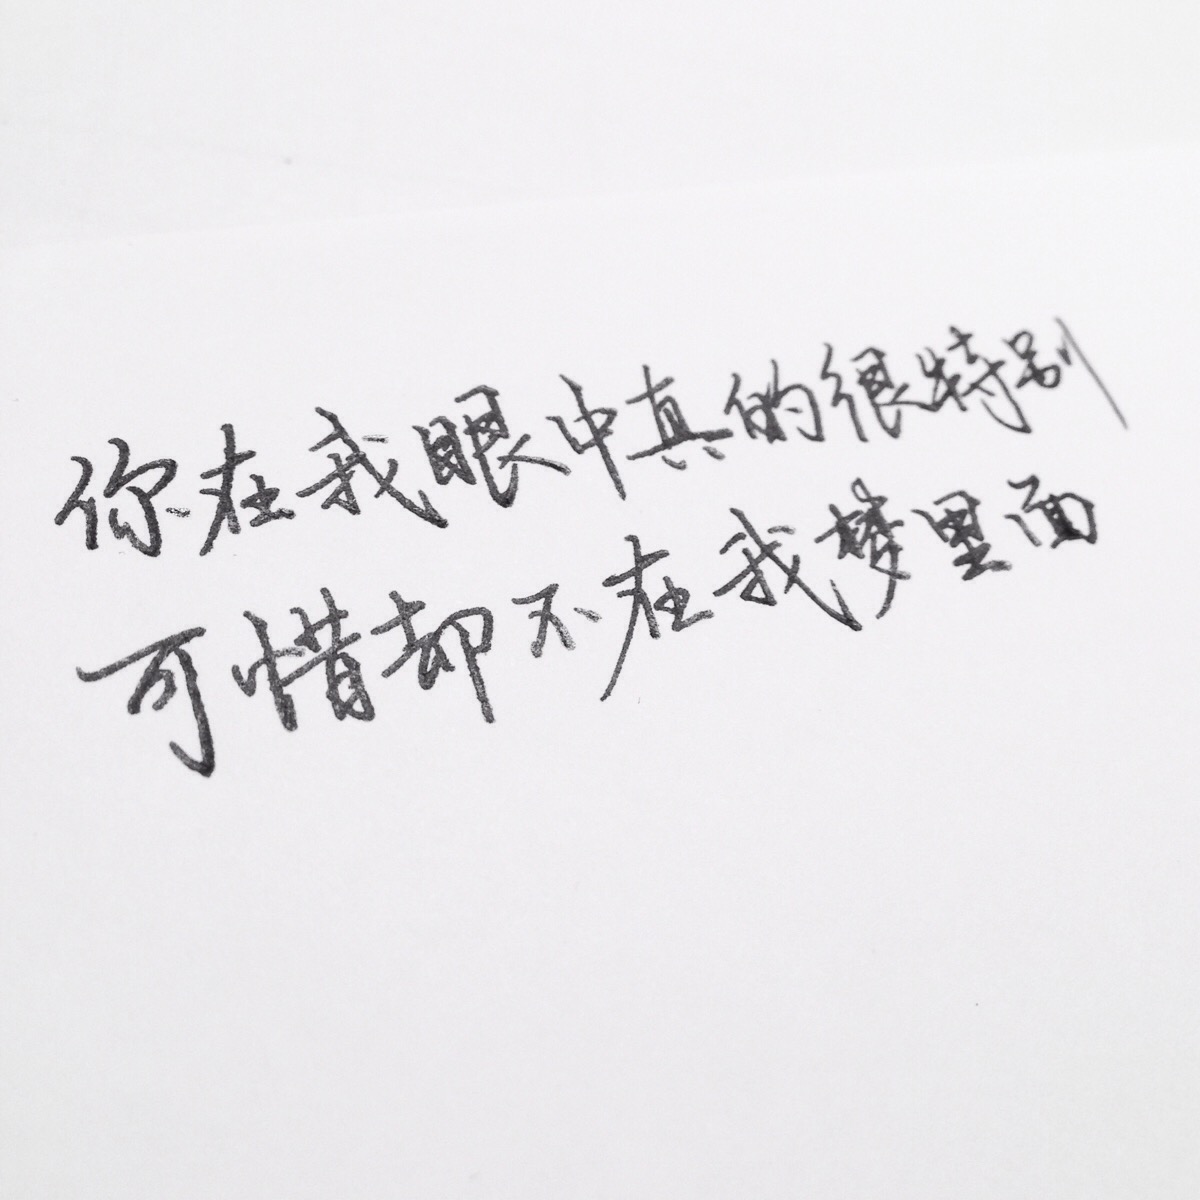 你在我眼中真的很特别
可惜却不在我梦里面